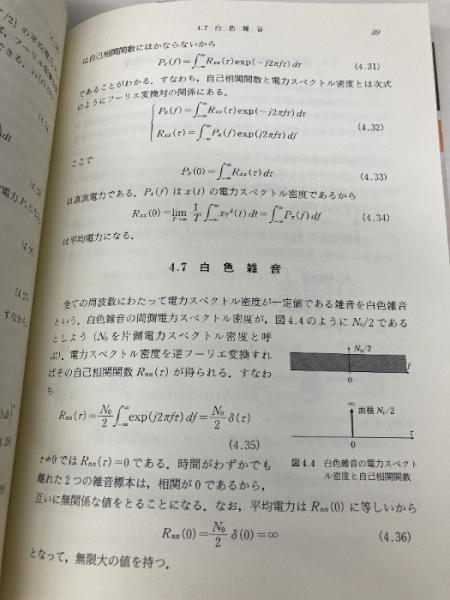 4.7 白色雑音
39
は自己相関関数にほかならないから
Px(f)=∫_{-∞}^{∞}Rxx(τ)exp(−j2πfτ)dτ (4.31)
であることがわかる．すなわち，自己相関関数と電力スペクトル密度とは次式
のようにフーリエ変換対の関係にある．
Px(f)=∫_{-∞}^{∞}Rxx(τ)exp(−j2πfτ)dτ
(4.32)
Rxx(τ)=∫_{-∞}^{∞}Px(f)exp(j2πfτ)df
ここで
Px(0)=∫_{-∞}^{∞}Rxx(τ)dτ (4.33)
は直流電力である．Px(f) は x(t) の電力スペクトル密度であるから
Rxx(0)=lim_{T→∞} 1/T ∫_{-∞}^{∞}x_T²(t)dt=∫_{-∞}^{∞}Px(f)df (4.34)
は平均電力になる．
4.7 白色雑音
全ての周波数にわたって電力スペクトル密度が一定値である雑音を白色雑音
という．白色雑音の両側電力スペクトル密度が，図4.4のように N₀/2 である
としよう (N₀ を片側電力スペクトル密度と呼
ぶ)．電力スペクトル密度を逆フーリエ変換すれ
ばその自己相関関数 Rnn(τ) が得られる．すなわ
ち
Rnn(τ)=N₀/2 ∫_{-∞}^{∞}exp(j2πfτ)df=N₀/2 δ(τ)
(4.35)
τ≠0 では Rnn(τ)=0 である．時間がわずかでも
離れた2つの雑音標本は，相関が0であるから，
互いに無関係な値をとることになる．なお，平均電力は Rnn(0) に等しいから
Rnn(0)=N₀/2 δ(0)=∞ (4.36)
となって，無限大の値を持つ．
N₀/2
f
0
面積 N₀/2
τ
0
図4.4 白色雑音の電力スペクト
ル密度と自己相関関数